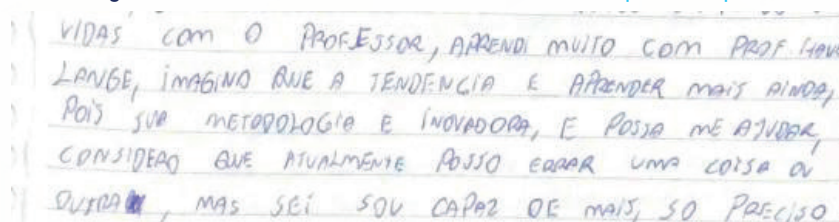 VIDAS COM O PROFESSOR, APRENDI MUITO COM PROF.
LANGE, IMAGINO QUE A TENDENCIA E APRENDER MAIS AINDA,
POIS SUA METODOLOGIA E INOVADORA, E POSSA ME AJUDAR,
CONSIDERO QUE ATUALMENTE POSSO ERRAR UMA COISA OU
OUTRA, MAS SEI SOU CAPAZ DE MAIS, SO PRECISO